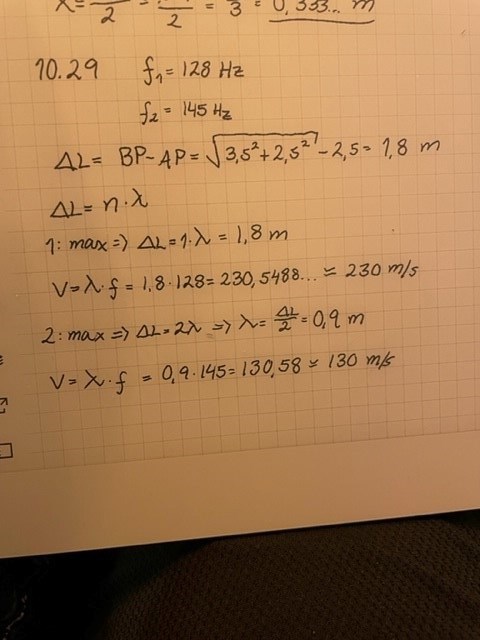 x = /2 = /2 = /3 = 0,333... m
10.29 f₁ = 128 Hz
f₂ = 145 Hz
ΔL = BP - AP = √(3,5² + 2,5²) - 2,5 = 1,8 m
ΔL = n · λ
1: max => ΔL = 1 · λ = 1,8 m
V = λ · f = 1,8 · 128 = 230,5488... ≈ 230 m/s
2: max => ΔL = 2λ => λ = ΔL/2 = 0,9 m
V = λ · f = 0,9 · 145 = 130,58 ≈ 130 m/s